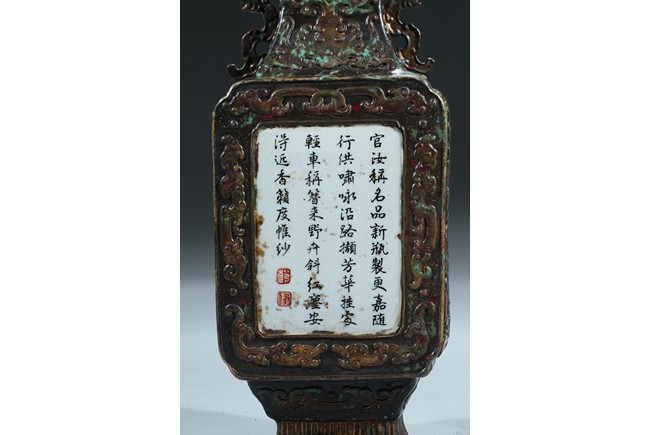 官汝稱名品新瓶製更嘉随
行供嘯咏沿路擷芳華挂處
輕車稱簪来野卉斜红塵安
淂近香籟度帷紗